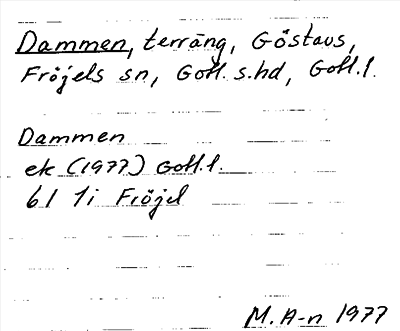 Dammen, terräng, Göstavs,
Fröjels sn, Gotl. s. hd, Gotl. l.
Dammen
ek (1977) Gotl. l.
6I 1i Fröjel
M. A-n 1977